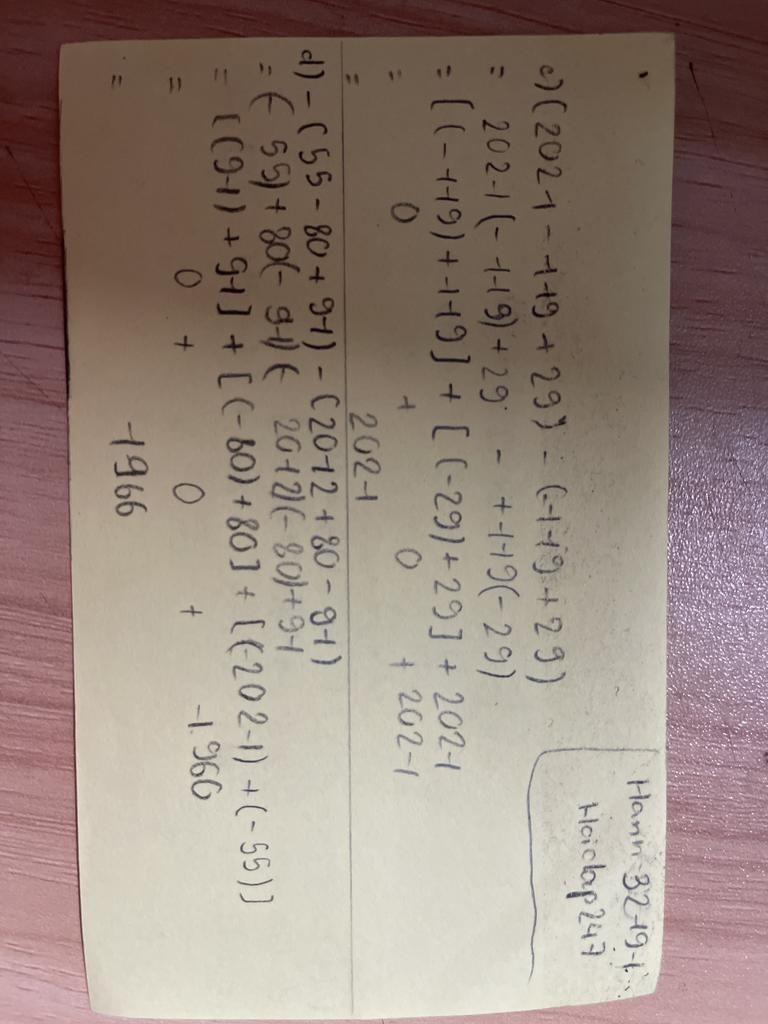 Hann 32191..
Hoidap247
c) (2021 - 119 + 29) - (-119 + 29)
= 2021 (-119) + 29 - +119 (-29)
= [(-119) + 119] + [(-29) + 29] + 2021
= 0 + 0 + 2021
= 2021
d) - (55 - 80 + 91) - (2012 + 80 - 91)
= (- 55) + 80(- 91) (- 2012) (- 80) + 91
= [(91) + 91] + [(-80) + 80] + [(-2021) + (-55)]
= 0 + 0 + -1966
= -1966